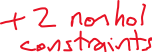 + 2 nonhol
constraints